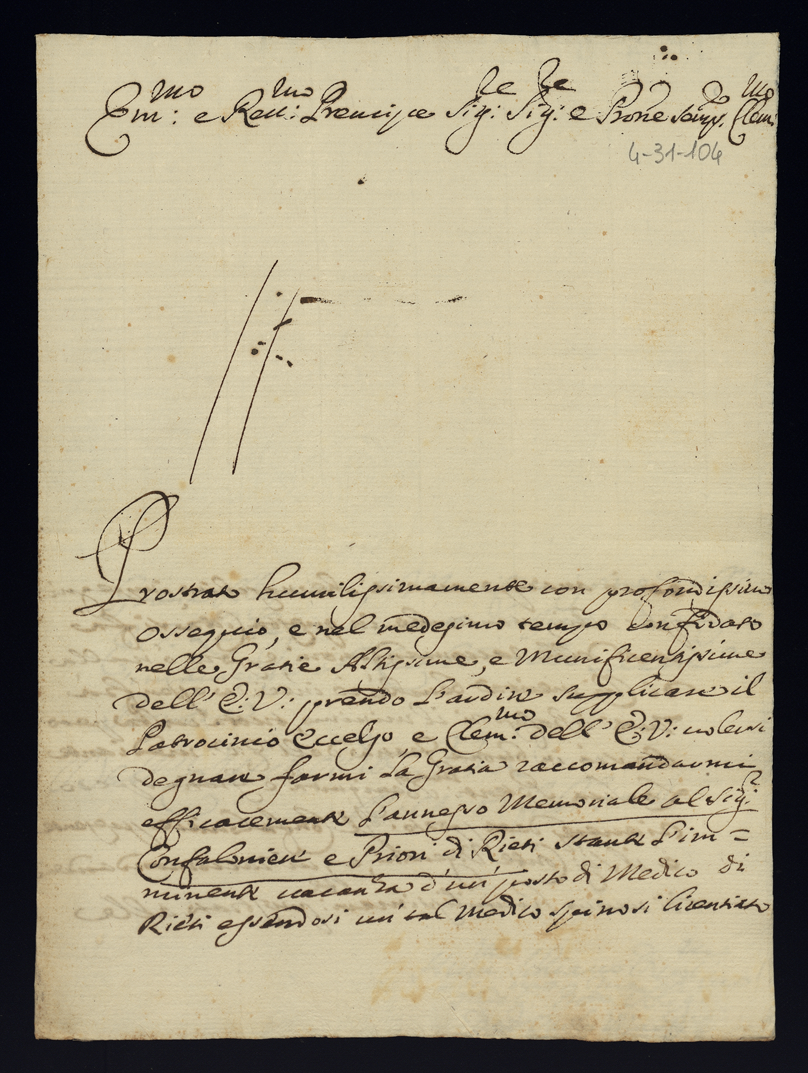 Em:mo e Reu:mo Prencipe Sig:re Sig:re e Prone semp. Clem:mo
4-31-104
Prostrato humilissimamente con profondissimo
ossequio, e nel medesimo tempo confidato
nelle Gratie Altissime, e Munificentissime
dell' E: V: prendo l'ardire supplicare il
Patrocinio Eccelso e Clem:mo dell' E: V: volersi
degnare farmi la Gratia raccomandarmi
efficacemente l'annesso Memoriale al Sig:r
Confaloniere e Priori di Rieti stante l'im=
minente vacanza d'un' posto di Medico di
Rieti essendosi un' tal Medico Spinosi licentiato